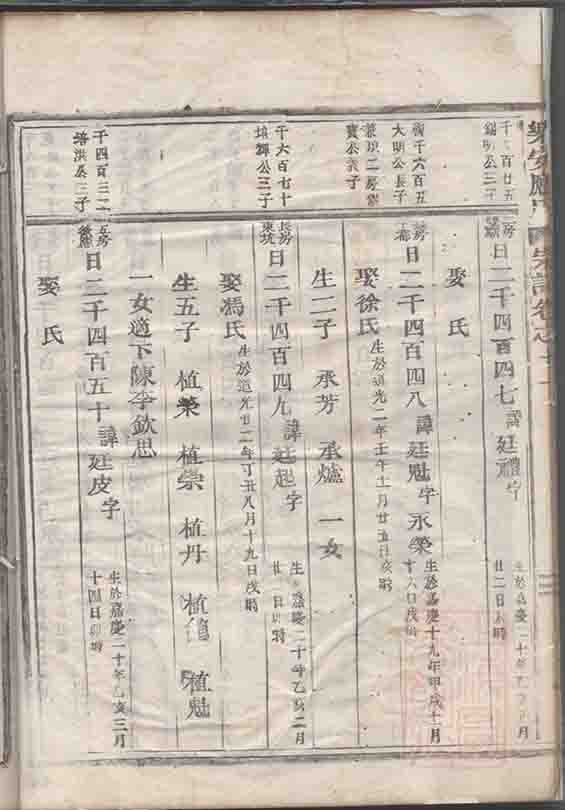 千六百廿五
錫明公三子
房
日二千四百四七諱廷禮字
生於嘉慶二十年乙亥正月
廿二日未時
娶氏
千六百五
大明公長子
房
日二千四百四八諱廷魁字永榮
生於嘉慶十九年甲戌十月
十六日戌時
娶徐氏
生於道光二年壬午十月廿五日亥時
生二子 承芳 承爐 一女
千六百七十
培輝公三子
長房
東坑
日二千四百四九諱廷起字
生嘉慶二十年乙亥二月
廿日時
娶馮氏
生於道光廿二年丁丑八月十九日戌時
生五子 植榮 植崇 植丹 植 植魁
一女適下陳李欽思
千四百三二
培洪公三子
五房
日二千四百五十諱廷皮字
生於嘉慶二十年乙亥三月
十四日卯時
娶氏